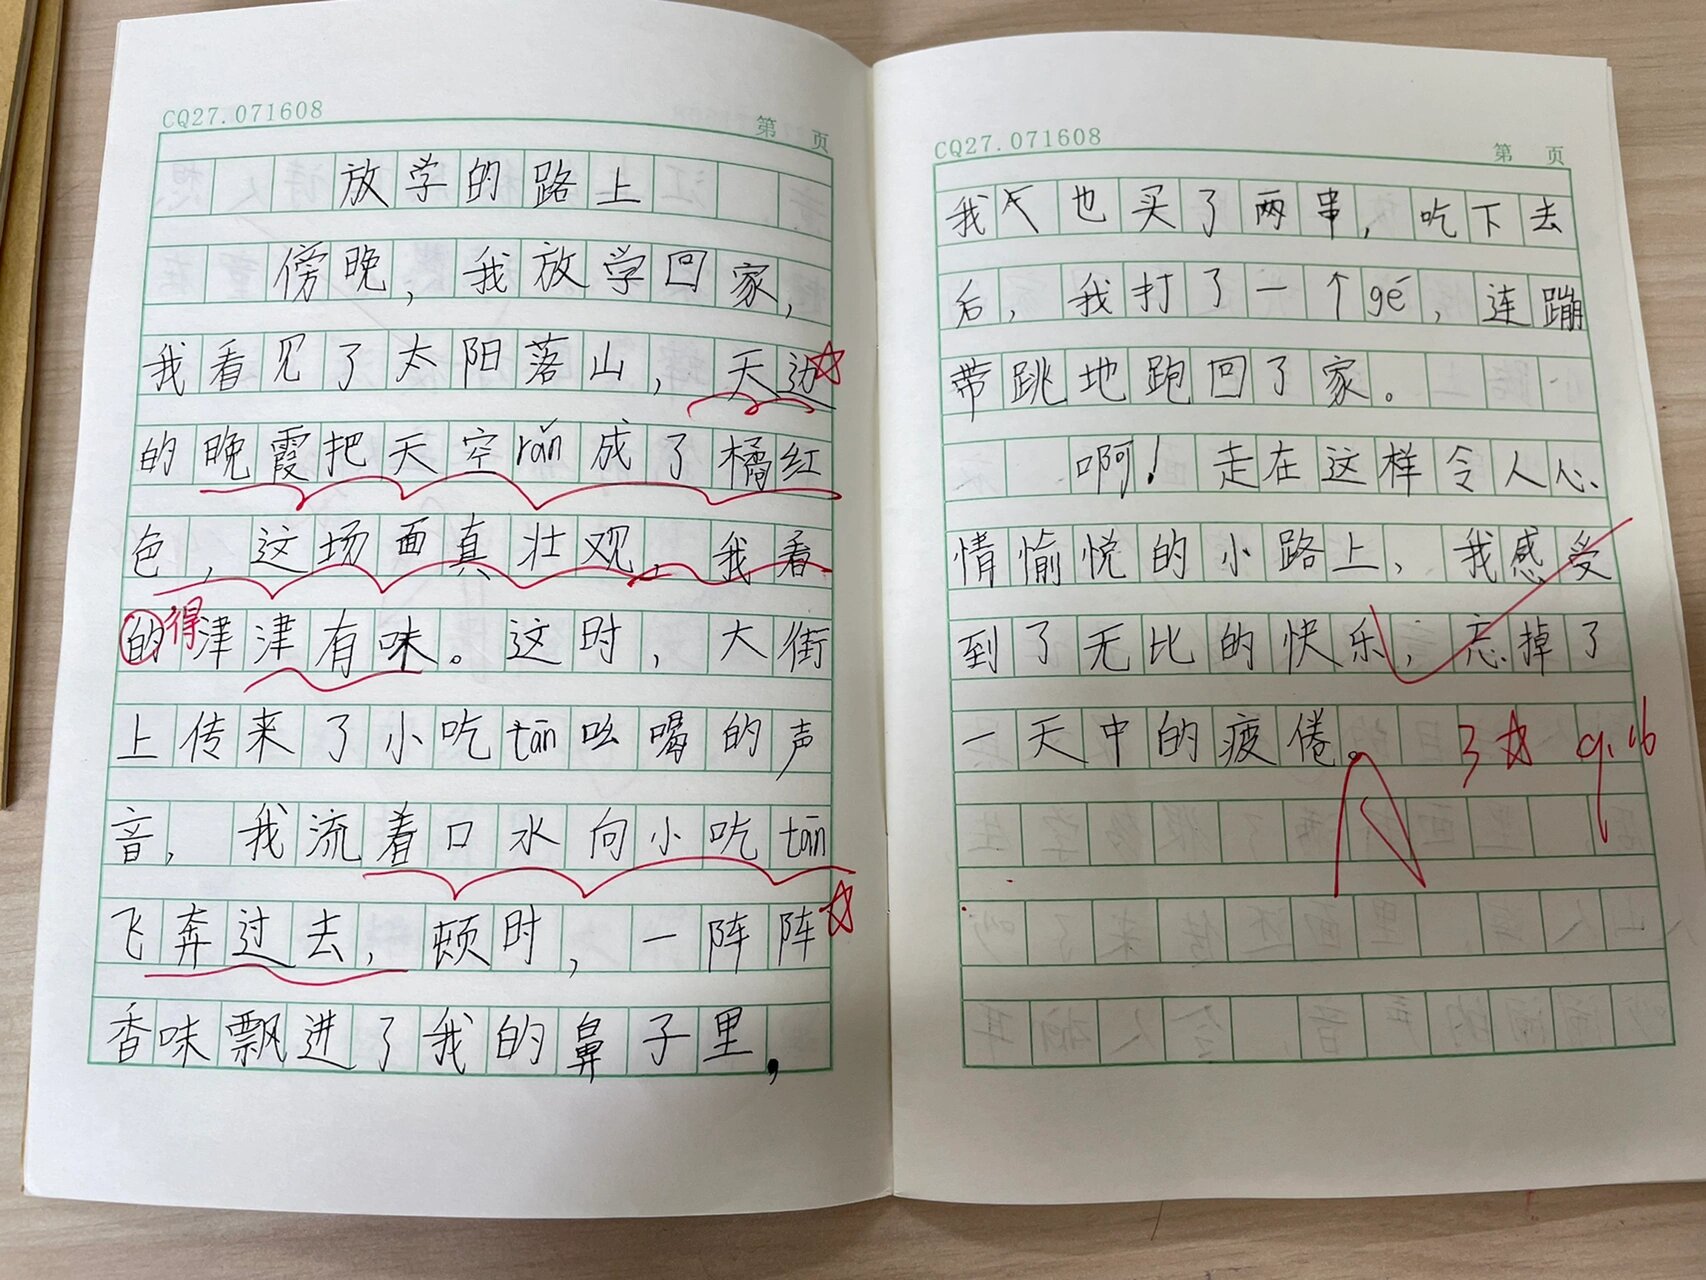 CQ27.071608
第 页
放学的路上
傍晚，我放学回家，
我看见了太阳落山，天边
的晚霞把天空rǎn成了橘红
色，这场面真壮观，我看
的得津津有味。这时，大街
上传来了小吃tān吆喝的声
音，我流着口水向小吃tān
飞奔过去，顿时，一阵阵
香味飘进了我的鼻子里，
CQ27.071608
第 页
我也买了两串，吃下去
后，我打了一个gé，连蹦
带跳地跑回了家。
啊！走在这样令人心
情愉悦的小路上，我感受
到了无比的快乐，忘掉了
一天中的疲倦。
3☆ 9.16